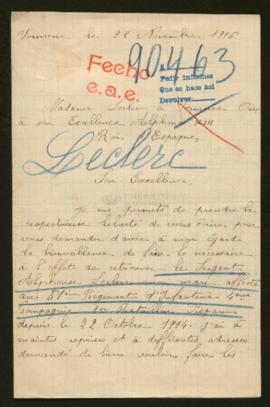 le 22 Novembre 1915
90463
Fecho
e.a.e.
Pedir informes
Que se hace así
Devolver
Madame Leclerc à
à son Excellence Alphonse XIII
Roi d'Espagne,
Leclerc
Son Excellence,
Je me permets de prendre la
respectueuse liberté de vous écrire pour
vous demander d'avoir à mon égard
la bienveillance de faire le nécessaire
à l'effet de retrouver le Sergent
Alphonse Leclerc mon mari affecté
au Régiment d'Infanterie 4ème
Compagnie 1er Bataillon disparu
depuis le 22 Octobre 1914. J'ai à
maintes reprises et à différentes adresses
demandé de bien vouloir faire les